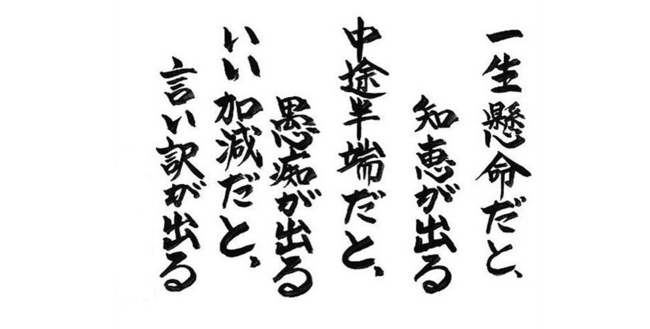 一生懸命だと、
知恵が出る
中途半端だと、
愚痴が出る
いい加減だと、
言い訳が出る